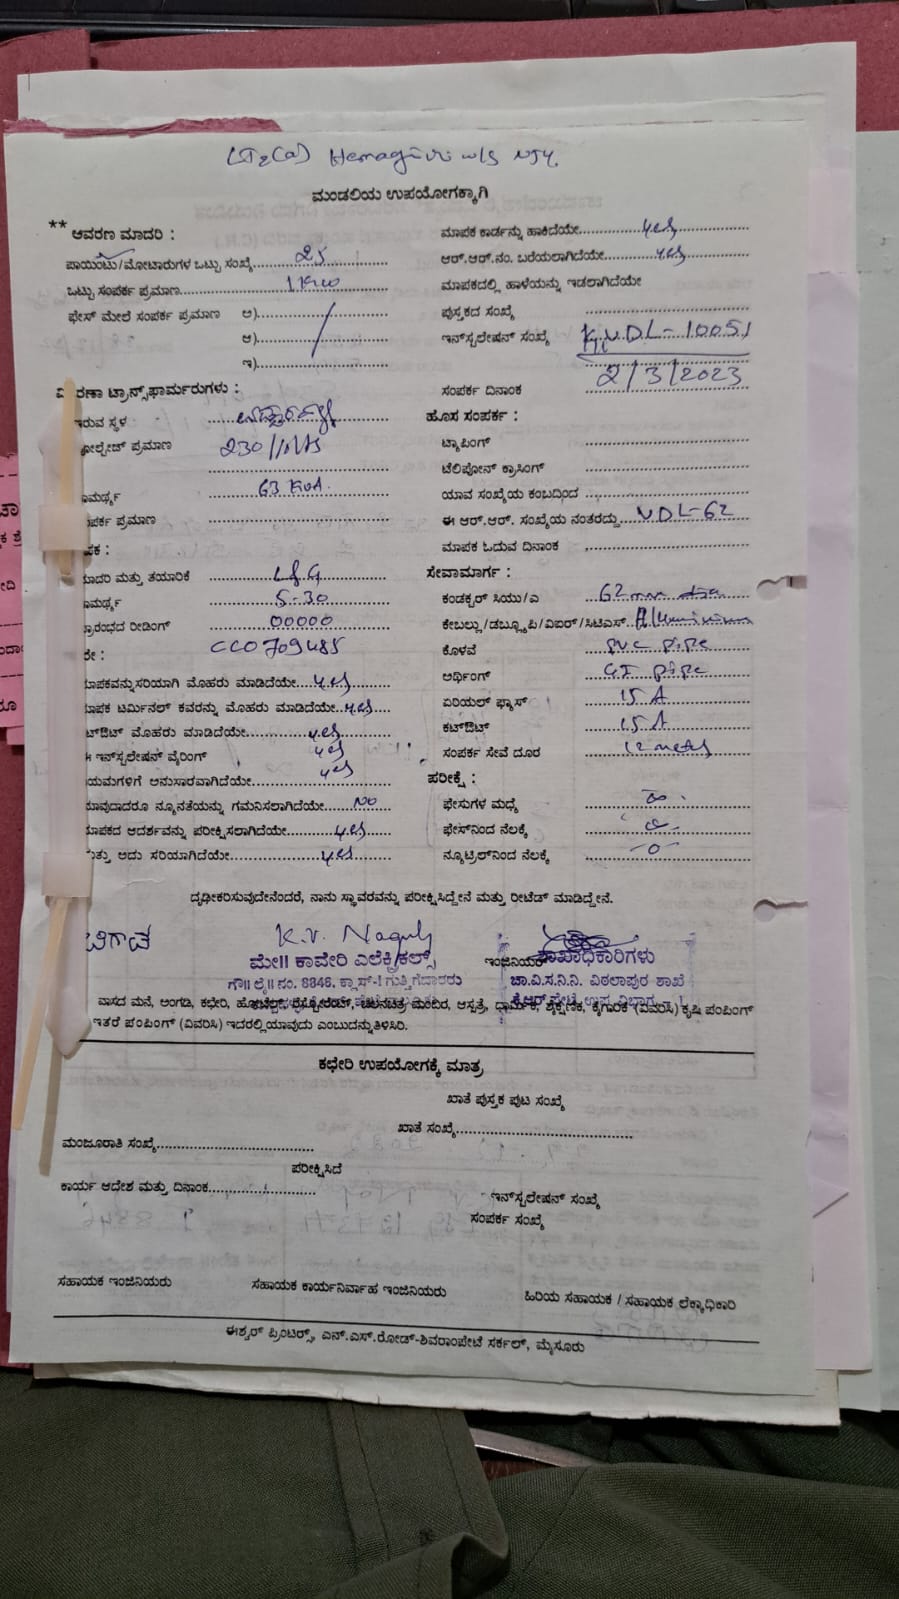 LT2(a) Hemagiri w/s NJY.
ಮಂಡಲಿಯ ಉಪಯೋಗಕ್ಕಾಗಿ
** ಆವರಣ ಮಾದರಿ :
ಪಾಯಿಂಟು/ಮೋಟಾರುಗಳ ಒಟ್ಟು ಸಂಖ್ಯೆ 25
ಒಟ್ಟು ಸಂಪರ್ಕ ಪ್ರಮಾಣ 1 KW
ಫೇಸ್ ಮೇಲೆ ಸಂಪರ್ಕ ಪ್ರಮಾಣ ಅ)
ಆ)
ಇ)
ಮಾಪಕ ಕಾರ್ಡನ್ನು ಹಾಕಿದೆಯೇ yes
ಆರ್.ಆರ್.ನಂ. ಬರೆಯಲಾಗಿದೆಯೇ yes
ಮಾಪಕದಲ್ಲಿ ಹಾಳೆಯನ್ನು ಇಡಲಾಗಿದೆಯೇ
ಪುಸ್ತಕದ ಸಂಖ್ಯೆ
ಇನ್‌ಸ್ಟಲೇಷನ್ ಸಂಖ್ಯೆ NDL-10051
ಸಂಪರ್ಕ ದಿನಾಂಕ 2/3/2023
ರಣಾ ಟ್ರಾನ್ಸ್‌ಫಾರ್ಮರುಗಳು :
ಇರುವ ಸ್ಥಳ
ಓಲ್ಟೇಜ್ ಪ್ರಮಾಣ 230
ಾಮರ್ಥ್ಯ 63 KVA.
ಂಪರ್ಕ ಪ್ರಮಾಣ
ಪಕ :
ಮಾದರಿ ಮತ್ತು ತಯಾರಿಕೆ L&G
ಾಮರ್ಥ್ಯ 5-30
ಪ್ರಾರಂಭದ ರೀಡಿಂಗ್ 00000
ರೇ : CC0709485
ಮಾಪಕವನ್ನು ಸರಿಯಾಗಿ ಮೊಹರು ಮಾಡಿದೆಯೇ yes
ಮಾಪಕ ಟರ್ಮಿನಲ್ ಕವರನ್ನು ಮೊಹರು ಮಾಡಿದೆಯೇ yes
ಟ್‌ಔಟ್ ಮೊಹರು ಮಾಡಿದೆಯೇ yes
ಈ ಇನ್‌ಸ್ಟಲೇಷನ್ ವೈರಿಂಗ್ yes
ಯಮಗಳಿಗೆ ಅನುಸಾರವಾಗಿದೆಯೇ yes
ಯಾವುದಾದರೂ ನ್ಯೂನತೆಯನ್ನು ಗಮನಿಸಲಾಗಿದೆಯೇ No
ಮಾಪಕದ ಆದರ್ಶವನ್ನು ಪರೀಕ್ಷಿಸಲಾಗಿದೆಯೇ yes
ಮತ್ತು ಅದು ಸರಿಯಾಗಿದೆಯೇ yes
ಹೊಸ ಸಂಪರ್ಕ :
ಟ್ಯಾಪಿಂಗ್
ಟೆಲಿಫೋನ್ ಕ್ರಾಸಿಂಗ್
ಯಾವ ಸಂಖ್ಯೆಯ ಕಂಬದಿಂದ
ಈ ಆರ್.ಆರ್. ಸಂಖ್ಯೆಯ ನಂತರದ್ದು NDL-62
ಮಾಪಕ ಓದುವ ದಿನಾಂಕ
ಸೇವಾಮಾರ್ಗ :
ಕಂಡಕ್ಟರ್ ಸಿಯು/ಎ
ಕೇಬಲ್ಲು/ಡಬ್ಲ್ಯೂಪಿ/ವಿಐಆರ್/ಸಿಟಿಎಸ್ Aluminium
ಕೊಳವೆ PVC pipe
ಅರ್ಥಿಂಗ್ GI pipe
ಏರಿಯಲ್ ಫ್ಯೂಸ್ 15 A
ಕಟ್‌ಔಟ್ 15 A
ಸಂಪರ್ಕ ಸೇವೆ ದೂರ 12 meters
ಪರೀಕ್ಷೆ :
ಫೇಸುಗಳ ಮಧ್ಯೆ ∞
ಫೇಸ್‌ನಿಂದ ನೆಲಕ್ಕೆ
ನ್ಯೂಟ್ರಲ್‌ನಿಂದ ನೆಲಕ್ಕೆ -0-
ದೃಢೀಕರಿಸುವುದೇನೆಂದರೆ, ನಾನು ಸ್ಥಾವರವನ್ನು ಪರೀಕ್ಷಿಸಿದ್ದೇನೆ ಮತ್ತು ರೀಟೆಡ್ ಮಾಡಿದ್ದೇನೆ.
K.V.
ಮೇ॥ ಕಾವೇರಿ ಎಲೆಕ್ಟ್ರಿಕಲ್ಸ್
ಗೌ॥ ಲೈ॥ ನಂ. 8846, ಕ್ಲಾಸ್-I ಗುತ್ತಿಗೆದಾರರು
ಇಂಜಿನಿಯರ್ ಶಾಖಾಧಿಕಾರಿಗಳು
ಚಾ.ವಿ.ಸ.ನಿ.ನಿ. ವಿಠಲಾಪುರ ಶಾಖೆ
ಕೆ.ಆರ್.ಪೇಟೆ ಉಪ ವಿಭಾಗ
ವಾಸದ ಮನೆ, ಅಂಗಡಿ, ಕಛೇರಿ, ಹೊಟೆಲ್, ರೆಸ್ಟೋರೆಂಟ್, ಚಲನಚಿತ್ರ ಮಂದಿರ, ಆಸ್ಪತ್ರೆ, ಧಾರ್ಮಿಕ, ಶೈಕ್ಷಣಿಕ, ಕೈಗಾರಿಕೆ (ವಿವರಿಸಿ) ಕೃಷಿ ಪಂಪಿಂಗ್
ಇತರೆ ಪಂಪಿಂಗ್ (ವಿವರಿಸಿ) ಇದರಲ್ಲಿ ಯಾವುದು ಎಂಬುದನ್ನು ತಿಳಿಸಿರಿ.
ಕಛೇರಿ ಉಪಯೋಗಕ್ಕೆ ಮಾತ್ರ
ಖಾತೆ ಪುಸ್ತಕ ಪುಟ ಸಂಖ್ಯೆ
ಖಾತೆ ಸಂಖ್ಯೆ
ಮಂಜೂರಾತಿ ಸಂಖ್ಯೆ
ಪರೀಕ್ಷಿಸಿದೆ
ಕಾರ್ಯ ಆದೇಶ ಮತ್ತು ದಿನಾಂಕ
ಇನ್‌ಸ್ಟಲೇಷನ್ ಸಂಖ್ಯೆ
ಸಂಪರ್ಕ ಸಂಖ್ಯೆ
ಸಹಾಯಕ ಇಂಜಿನಿಯರು
ಸಹಾಯಕ ಕಾರ್ಯನಿರ್ವಾಹ ಇಂಜಿನಿಯರು
ಹಿರಿಯ ಸಹಾಯಕ / ಸಹಾಯಕ ಲೆಕ್ಕಾಧಿಕಾರಿ
ಈಶ್ವರ್ ಪ್ರಿಂಟರ್ಸ್, ಎನ್.ಎಸ್.ರೋಡ್-ಶಿವರಾಂಪೇಟೆ ಸರ್ಕಲ್, ಮೈಸೂರು